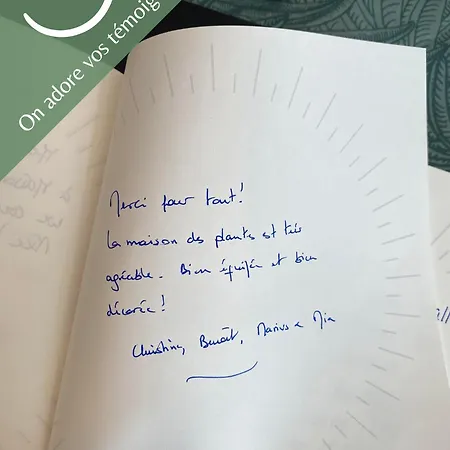 On adore vos témoig
Merci pour tout!
La maison des plantes est très
agréable. Bien équipée et bien
décorée!
Christine, Benoît, Marius & Mia